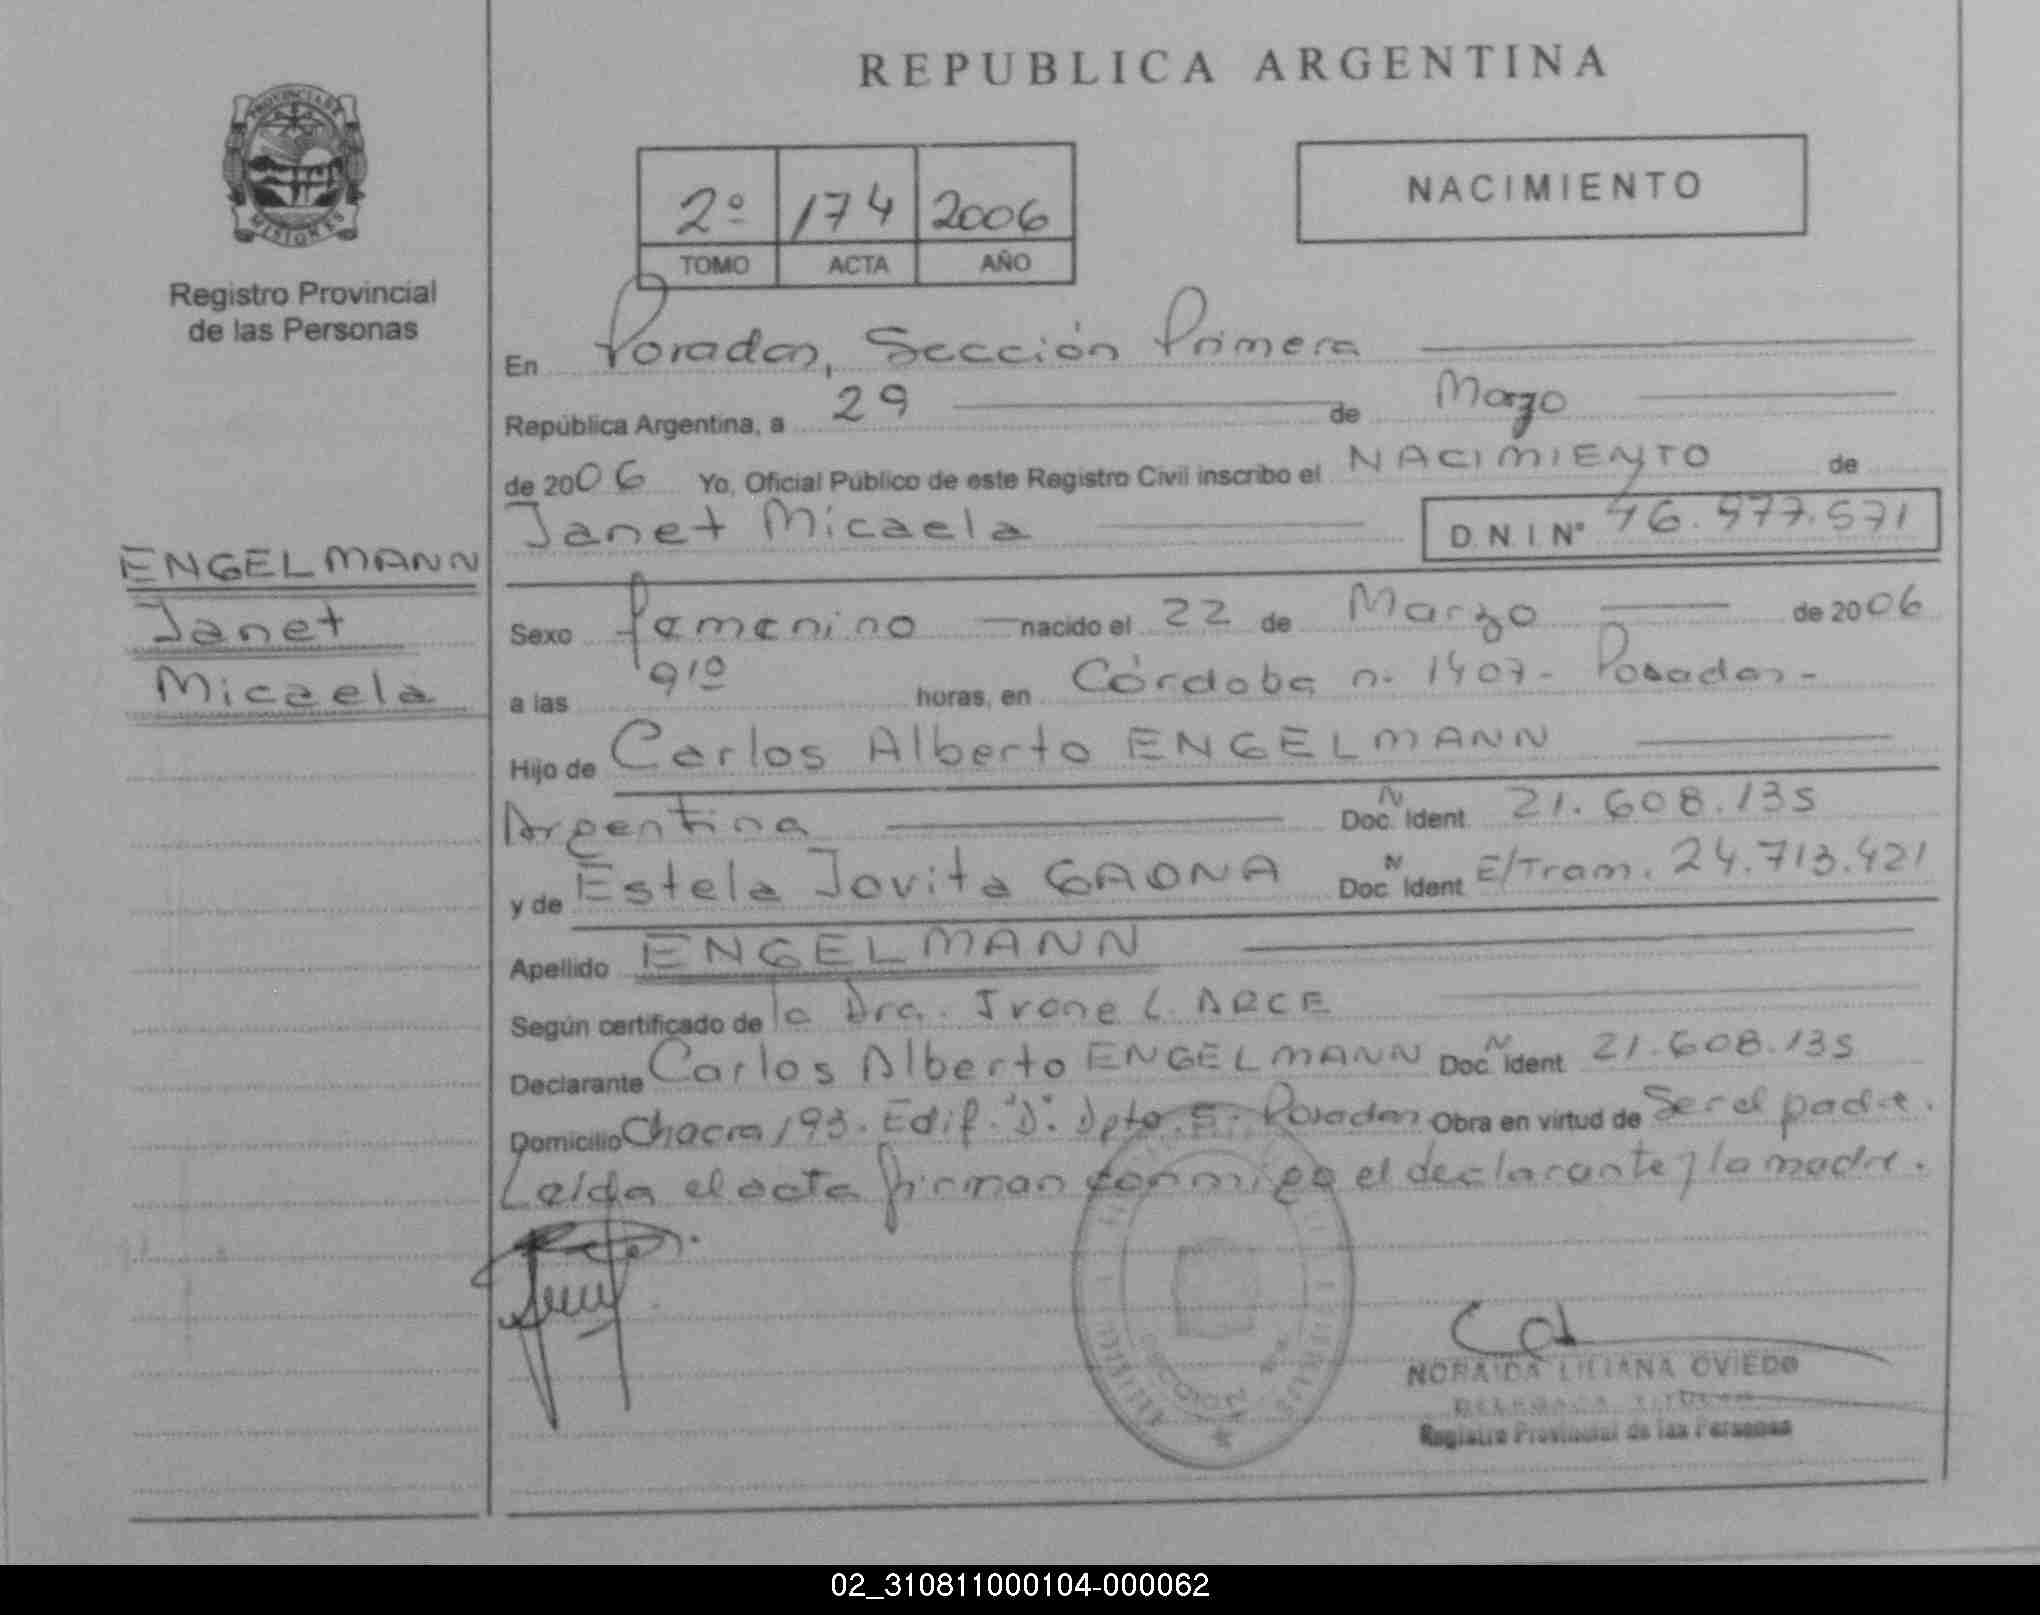 REPUBLICA ARGENTINA
PROVINCIA DE
MISIONES
Registro Provincial
de las Personas
2º 174 2006
TOMO ACTA AÑO
NACIMIENTO
En Posadas, Sección Primera
República Argentina, a 29 de Marzo
de 2006 Yo, Oficial Público de este Registro Civil inscribo el NACIMIENTO de
Janet Micaela D.N.I Nº 46.977.571
ENGELMANN
Janet
Micaela
Sexo femenino nacido el 22 de Marzo de 2006
a las 9 10 horas, en Córdoba n. 1407- Posadas-
Hijo de Carlos Alberto ENGELMANN
Argentina Doc. N Ident. 21.608.135
y de Estela Jovita GAONA Doc. N Ident. E/Tram. 24.713.421
Apellido ENGELMANN
Según certificado de la Dra. Irone L. ARCE
Declarante Carlos Alberto ENGELMANN Doc. N Ident. 21.608.135
Domicilio Chacra 193. Edif. "D". Dpto. 5- Posadas Obra en virtud de Ser el padre.
Leída el acta firman conmigo el declarante y la madre.
NORAIDA LILIANA OVIEDO
DELEGADA TITULAR
Registro Provincial de las Personas
02_310811000104-000062